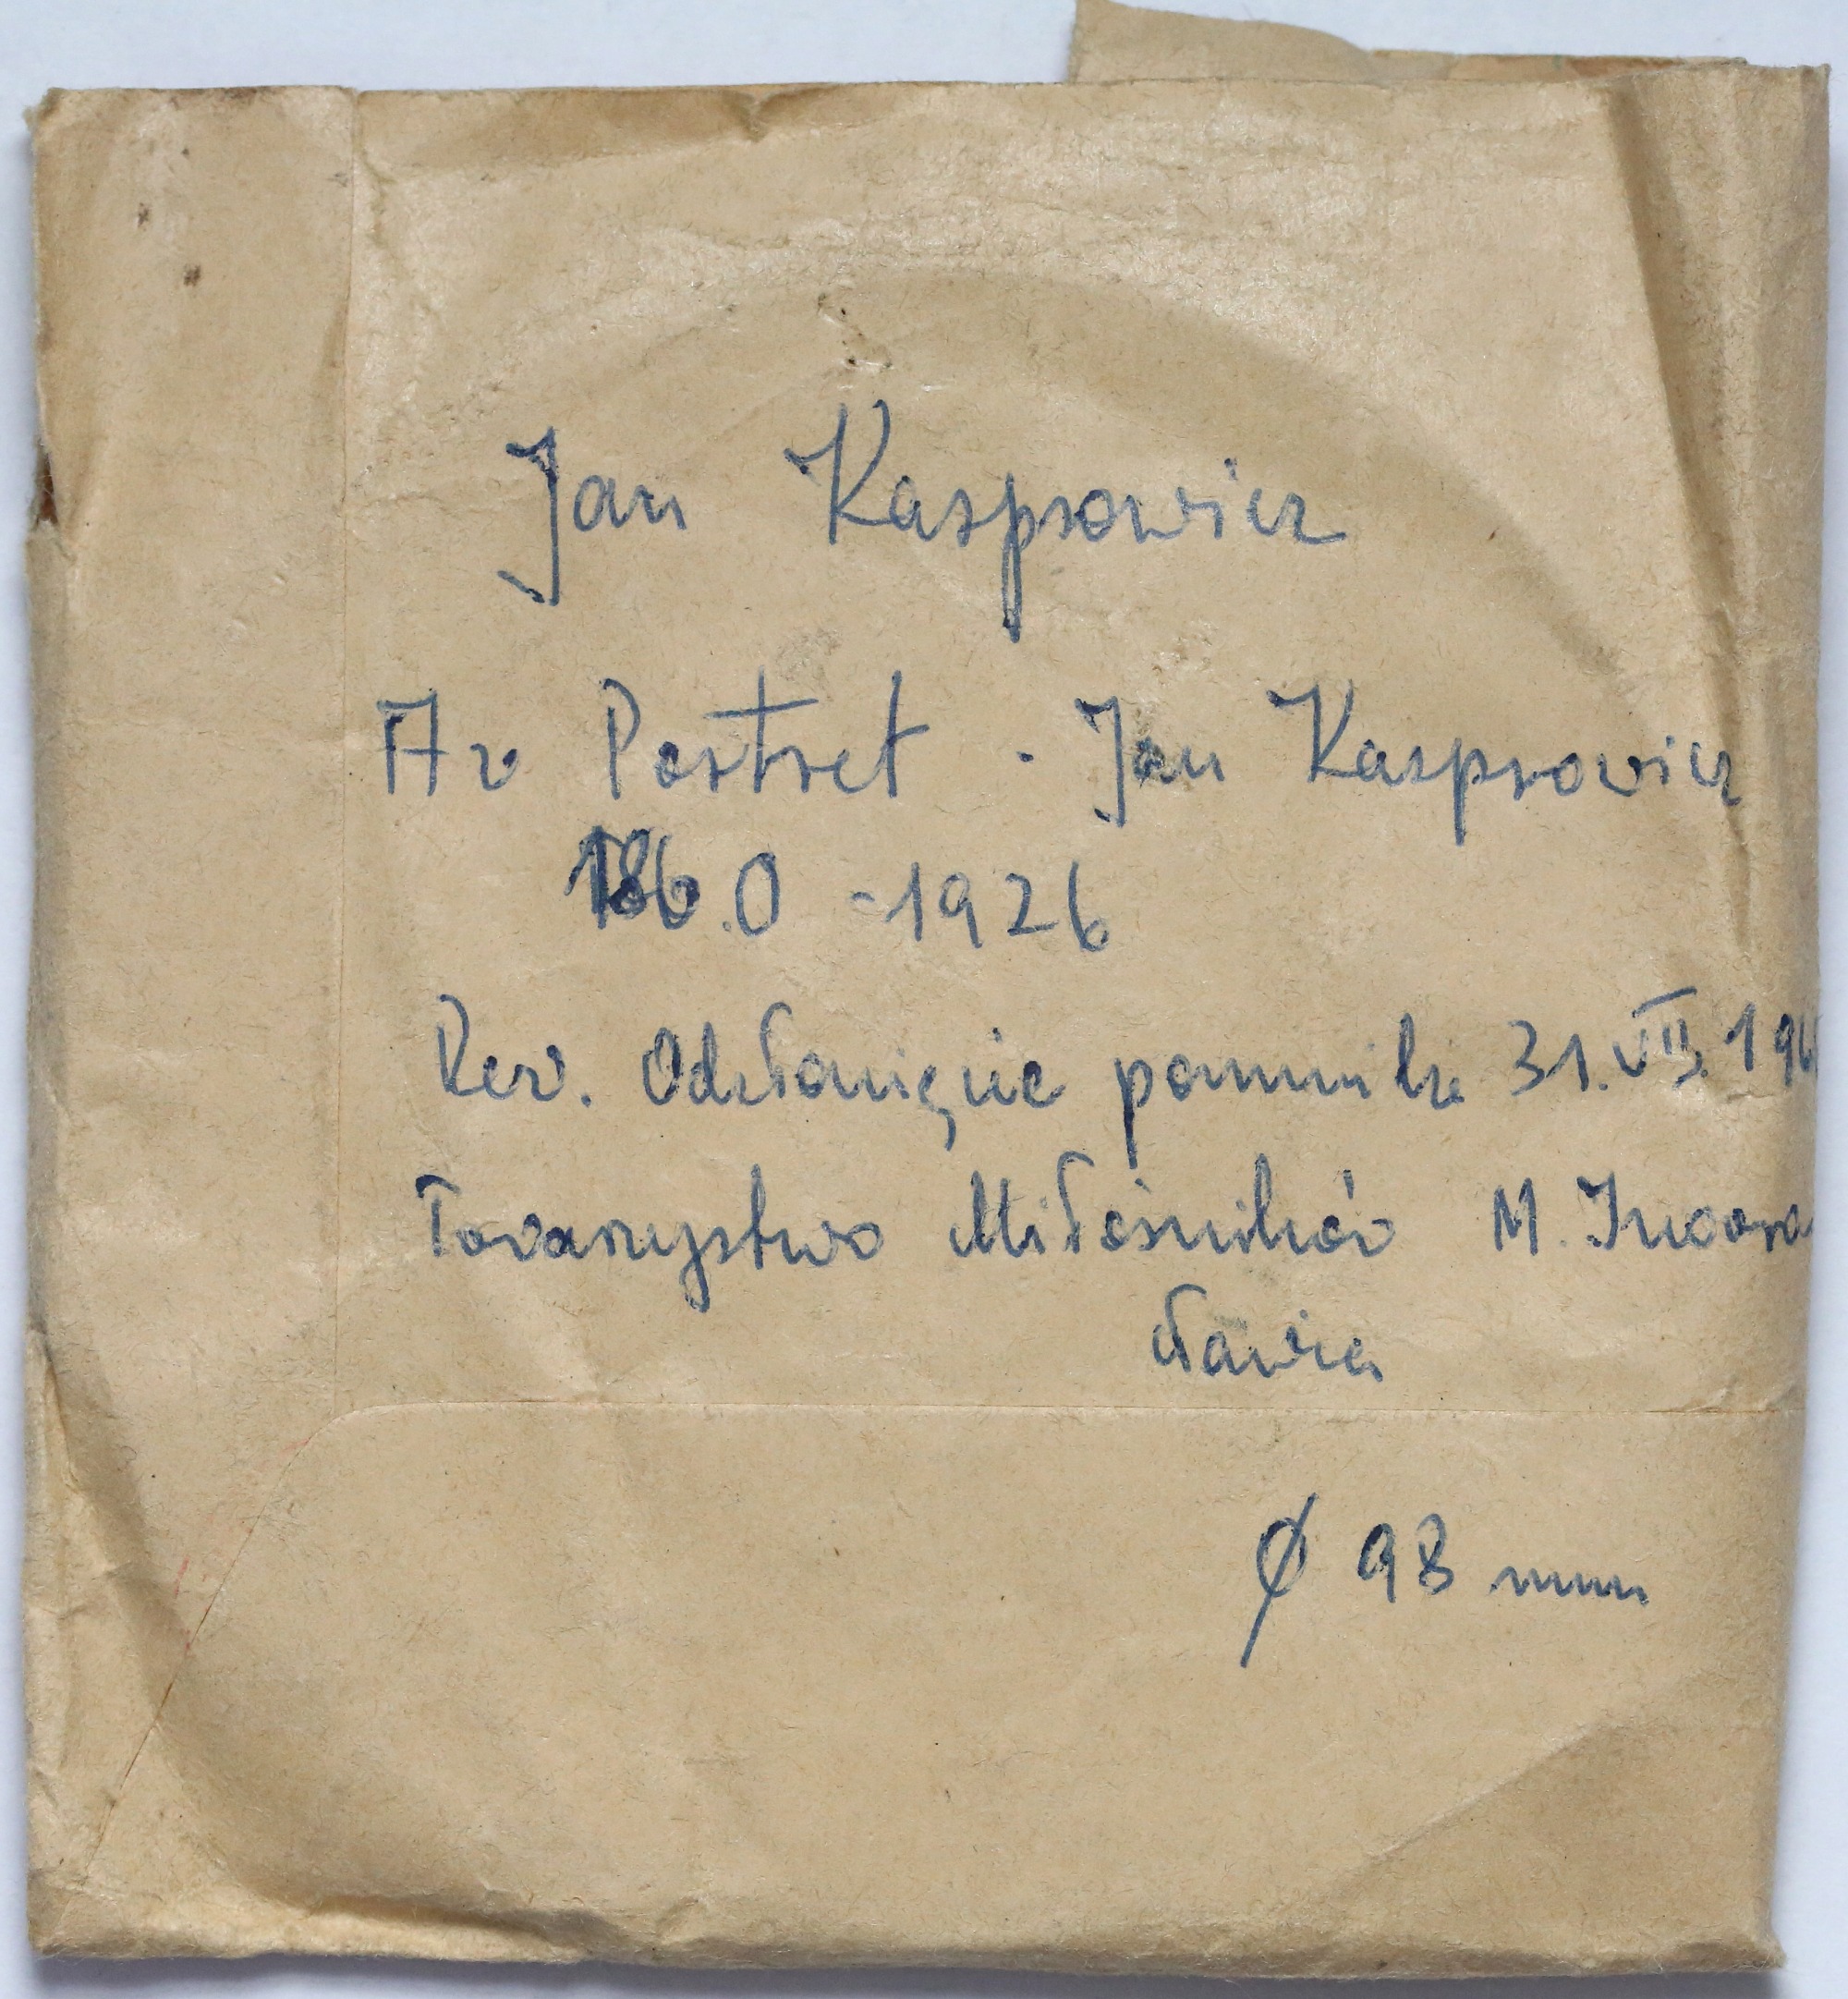 Jan Kasprowicz
Av Portret - Jan Kasprowicz
1860 - 1926
Rev. Odsłonięcie pomnika 31.VII.19
Towarzystwo Miłośników M. Inowro
cławia
Ø 98 mm